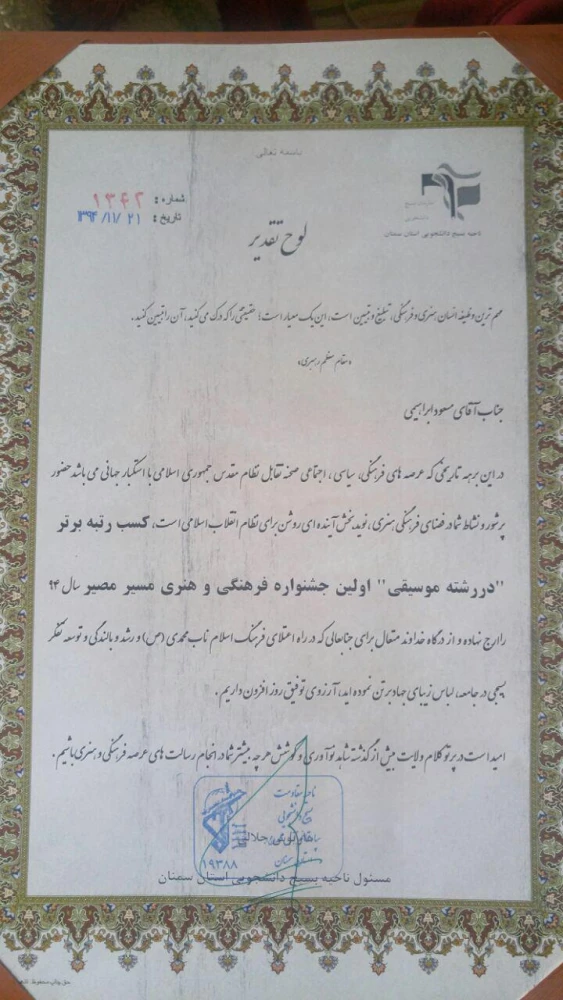 باسمه تعالی
شماره: ۱۳۴۲
تاریخ: ۱۳۹۴/۱۱/۲۱
ناحیه بسیج دانشجویی استان سمنان
لوح تقدیر
مهم ترین وظیفه انسان هنری و فرهنگی، تبلیغ و تبیین است، این یک معیار است؛ حقیقتی را که درک می کنید، آن را تبیین کنید.
«مقام معظم رهبری»
جناب آقای مسعود ابراهیمی
در این برهه تاریخی که عرصه های فرهنگی، سیاسی، اجتماعی صحنه تقابل نظام مقدس جمهوری اسلامی با استکبار جهانی می باشد حضور
پرشور و نشاط شما در فضای فرهنگی هنری، نوید بخش آینده ای روشن برای نظام انقلاب اسلامی است، کسب رتبه برتر
"در رشته موسیقی" اولین جشنواره فرهنگی و هنری مسیر مصیر سال ۹۴
را ارج نهاده و از درگاه خداوند متعال برای جنابعالی که در راه اعتلای فرهنگ اسلام ناب محمدی (ص) و رشد و بالندگی و توسعه تفکر
بسیجی در جامعه، لباس زیبای جهاد برتن نموده اید، آرزوی توفیق روز افزون داریم.
امید است در پرتو کلام ولایت بیش از گذشته شاهد نوآوری و کوشش هر چه بیشتر شما در انجام رسالت های عرصه فرهنگی و هنری باشیم.
ناحیه مقاومت
بسیج دانشجویی
جلالی
استان سمنان
۱۹۳۸۸
مسئول ناحیه بسیج دانشجویی استان سمنان
حق چاپ محفوظ